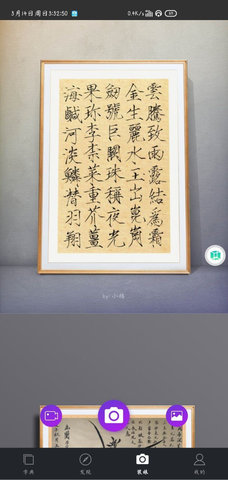 3月14日周日3:32:50
0.4K/s
69
雲騰致雨露結爲霜
金生麗水玉出崑崗
劍號巨闕珠稱夜光
果珎李柰菜重芥薑
海鹹河淡鱗潛羽翔
by:小
字典
发现
装裱
我的